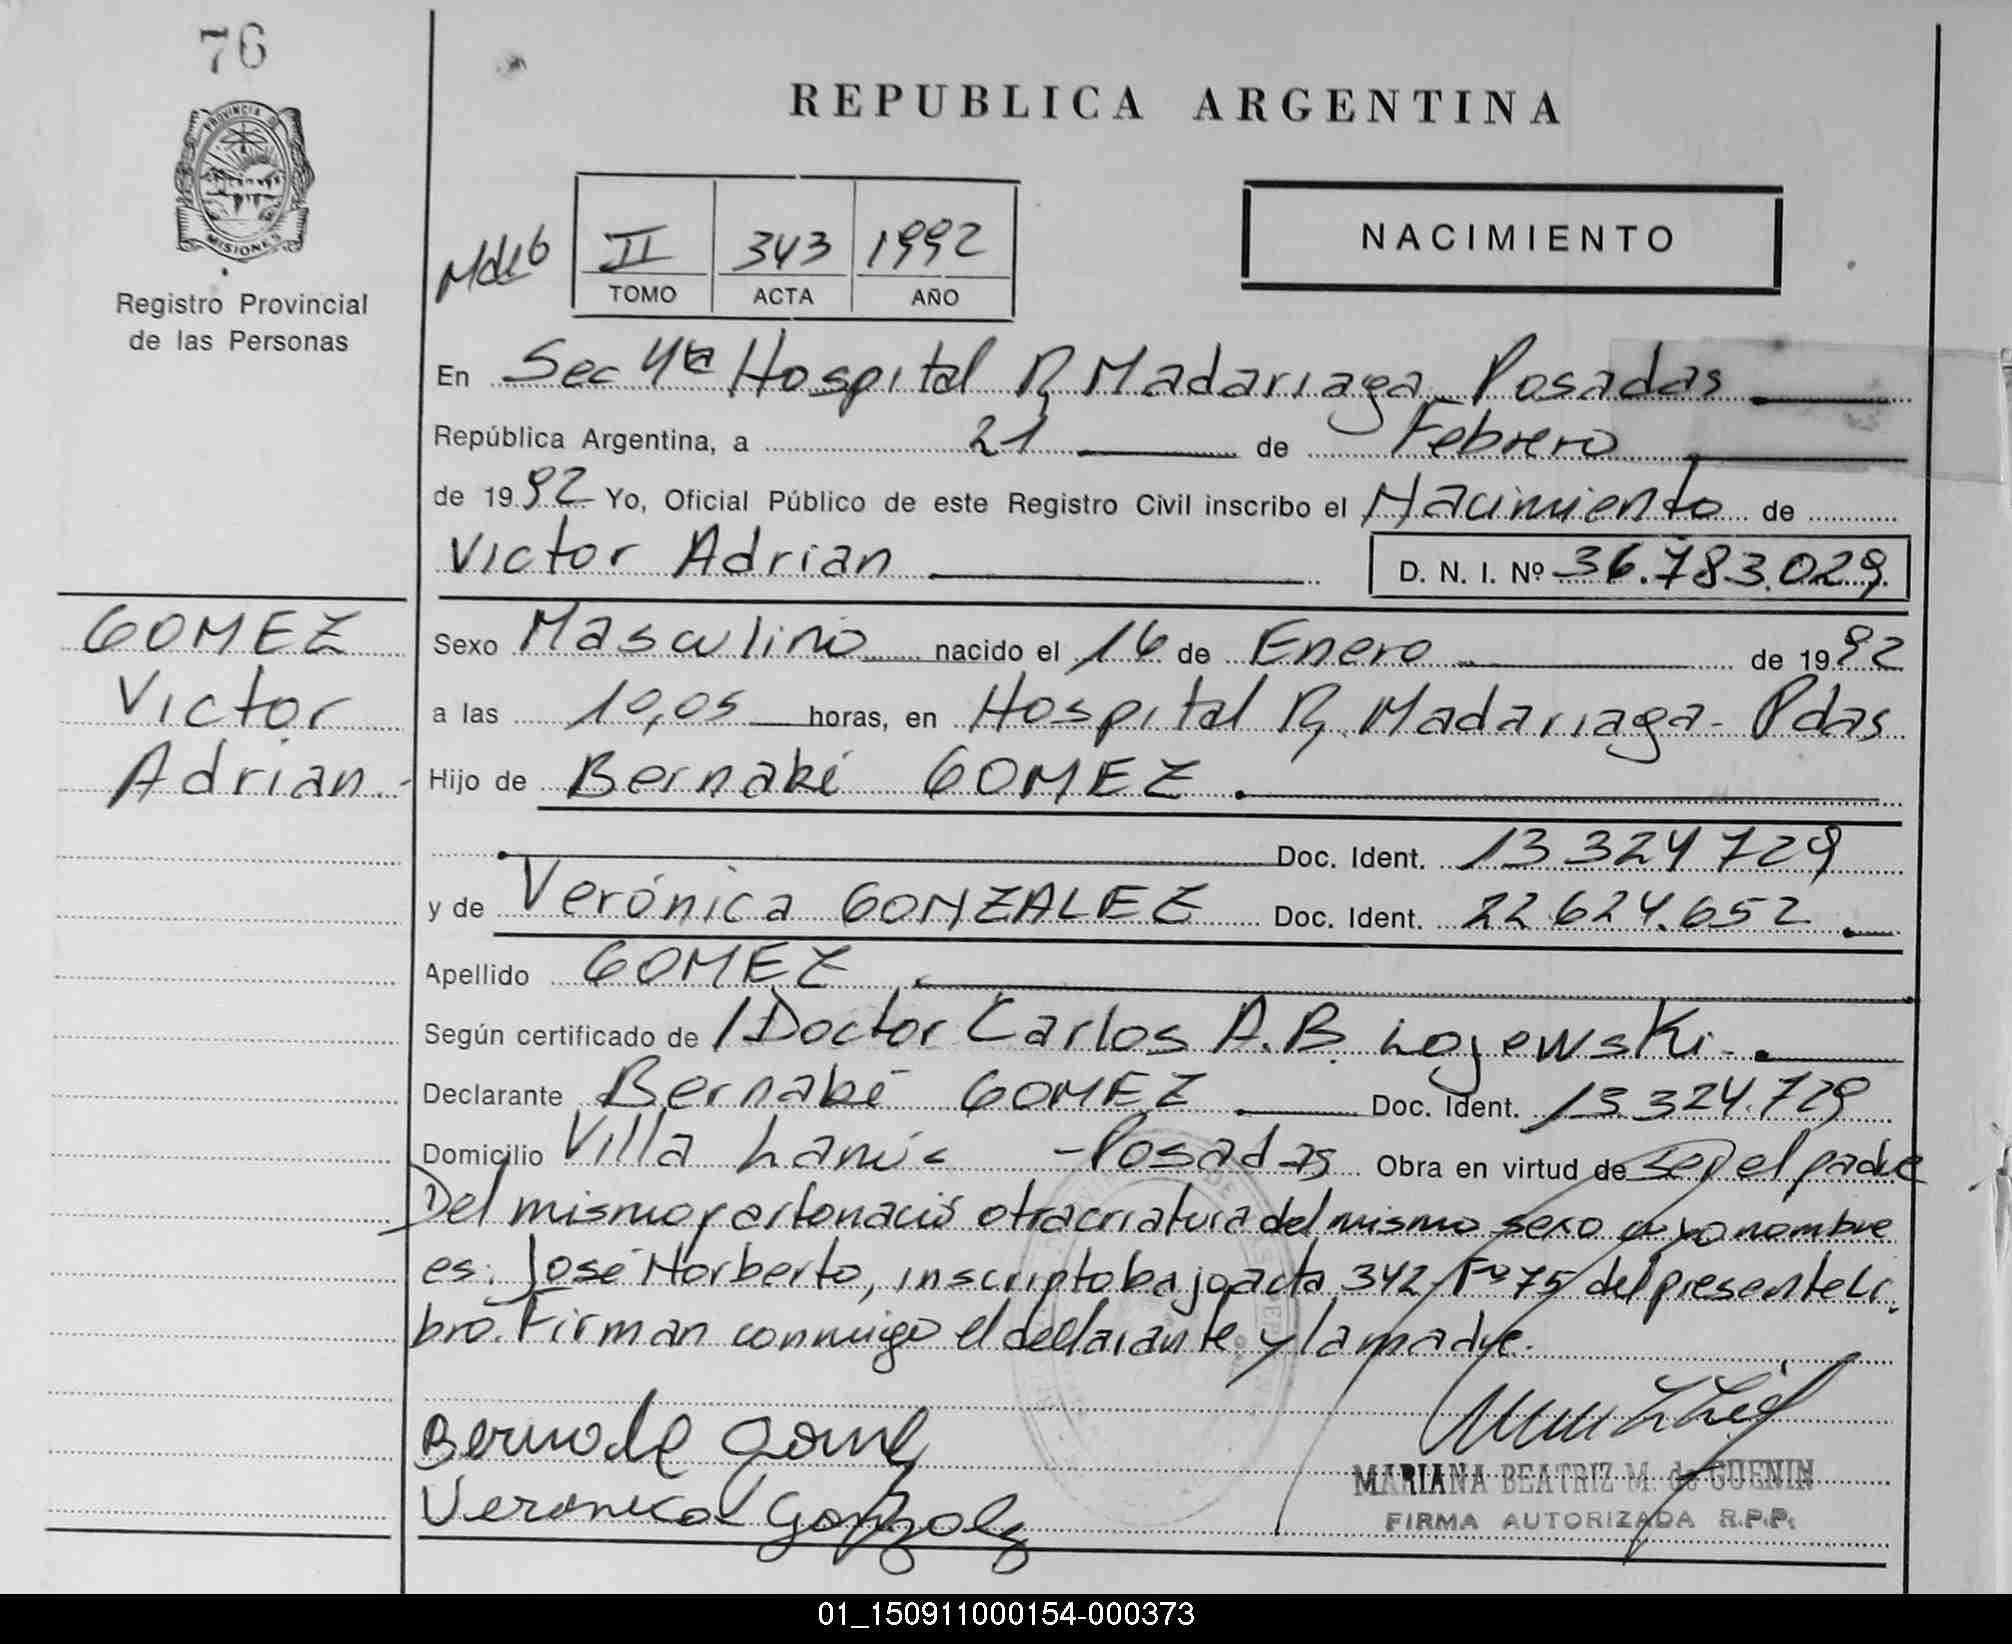 76
PROVINCIA DE
MISIONES
Registro Provincial
de las Personas
REPUBLICA ARGENTINA
II 343 1992
TOMO ACTA AÑO
NACIMIENTO
En Sec 4ta Hospital R, Madariaga Posadas
República Argentina, a 21 de Febrero
de 1992 Yo, Oficial Público de este Registro Civil inscribo el Nacimiento de
Victor Adrian D. N. I. Nº 36.783.029
GOMEZ
Victor
Adrian.-
Sexo Masculino nacido el 16 de Enero de 1992
a las 10,05 horas, en Hospital R, Madariaga - Pdas
Hijo de Bernabé GOMEZ.
Doc. Ident. 13 324 729
y de Verónica GONZALEZ Doc. Ident. 22.624.652.
Apellido GOMEZ
Según certificado de Doctor Carlos A.B. Lojewski.
Declarante Bernabé GOMEZ Doc. Ident. 13.324.729
Domicilio Villa Lanús - Posadas Obra en virtud de ser el padre
Del mismo parto nació otra criatura del mismo sexo cuyo nombre
es: José Norberto, inscripto bajo acta 342 Fº 75 del presente li
bro. Firman conmigo el declarante y la madre.
Bernabe Gomez
Veronica Gonzalez
MARIANA BEATRIZ M. de GUENIN
FIRMA AUTORIZADA R.P.P.
01_150911000154-000373